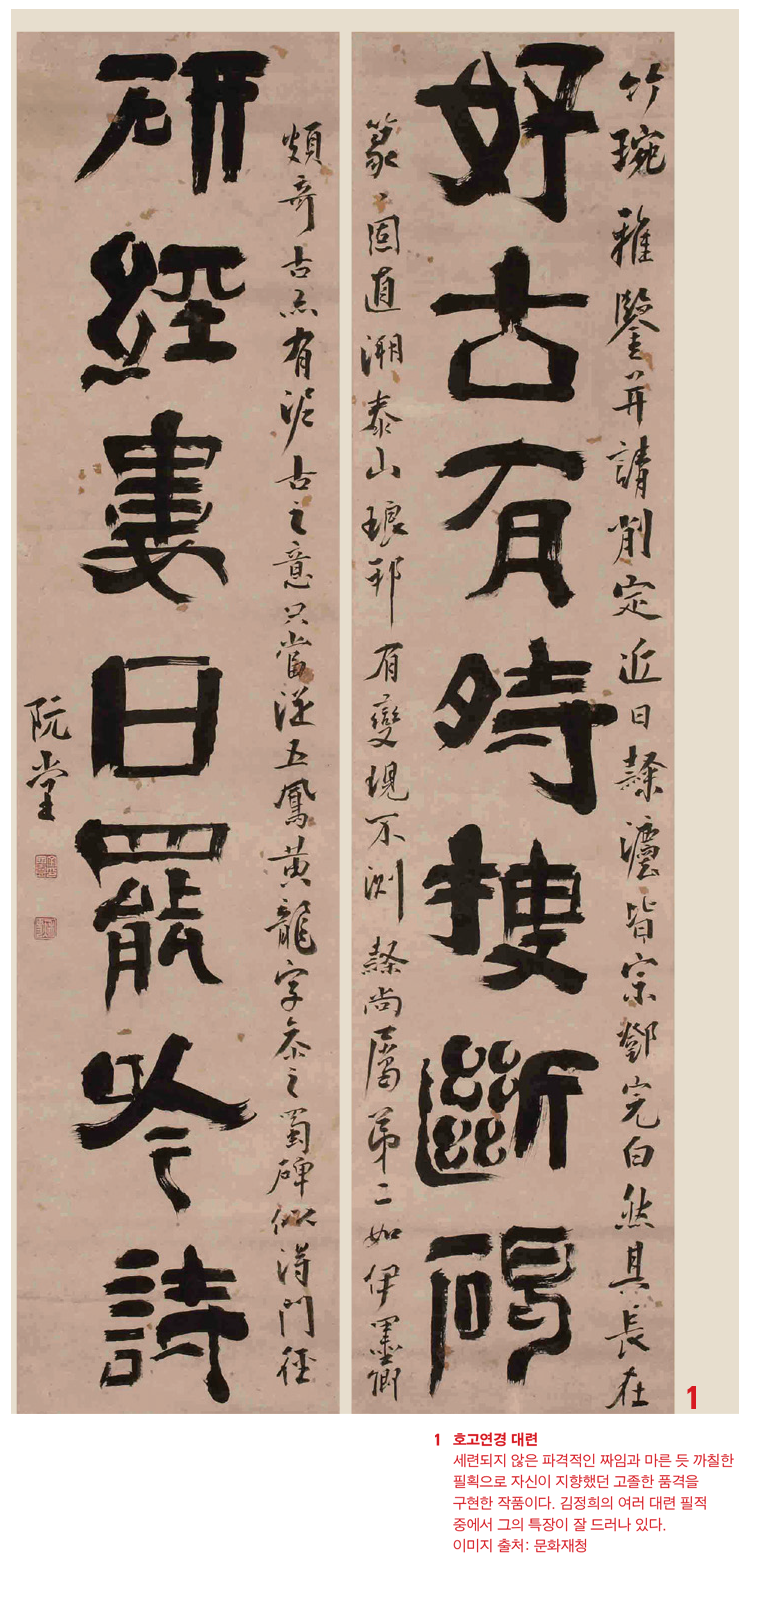 竹琬雅鑒并請削定近日隷灋皆宗鄧完白然其長在
好古有時搜斷碣
篆〻固直溯泰山琅邪有變現不測隷尚屬第二如伊墨卿
頗奇古亦有泥古之意只當從五鳳黃龍字參之蜀碑似得門徑
硏經婁日罷吟詩
阮堂
1
1 호고연경 대련
세련되지 않은 파격적인 짜임과 마른 듯 까칠한
필획으로 자신이 지향했던 고졸한 품격을
구현한 작품이다. 김정희의 여러 대련 필적
중에서 그의 특장이 잘 드러나 있다.
이미지 출처: 문화재청